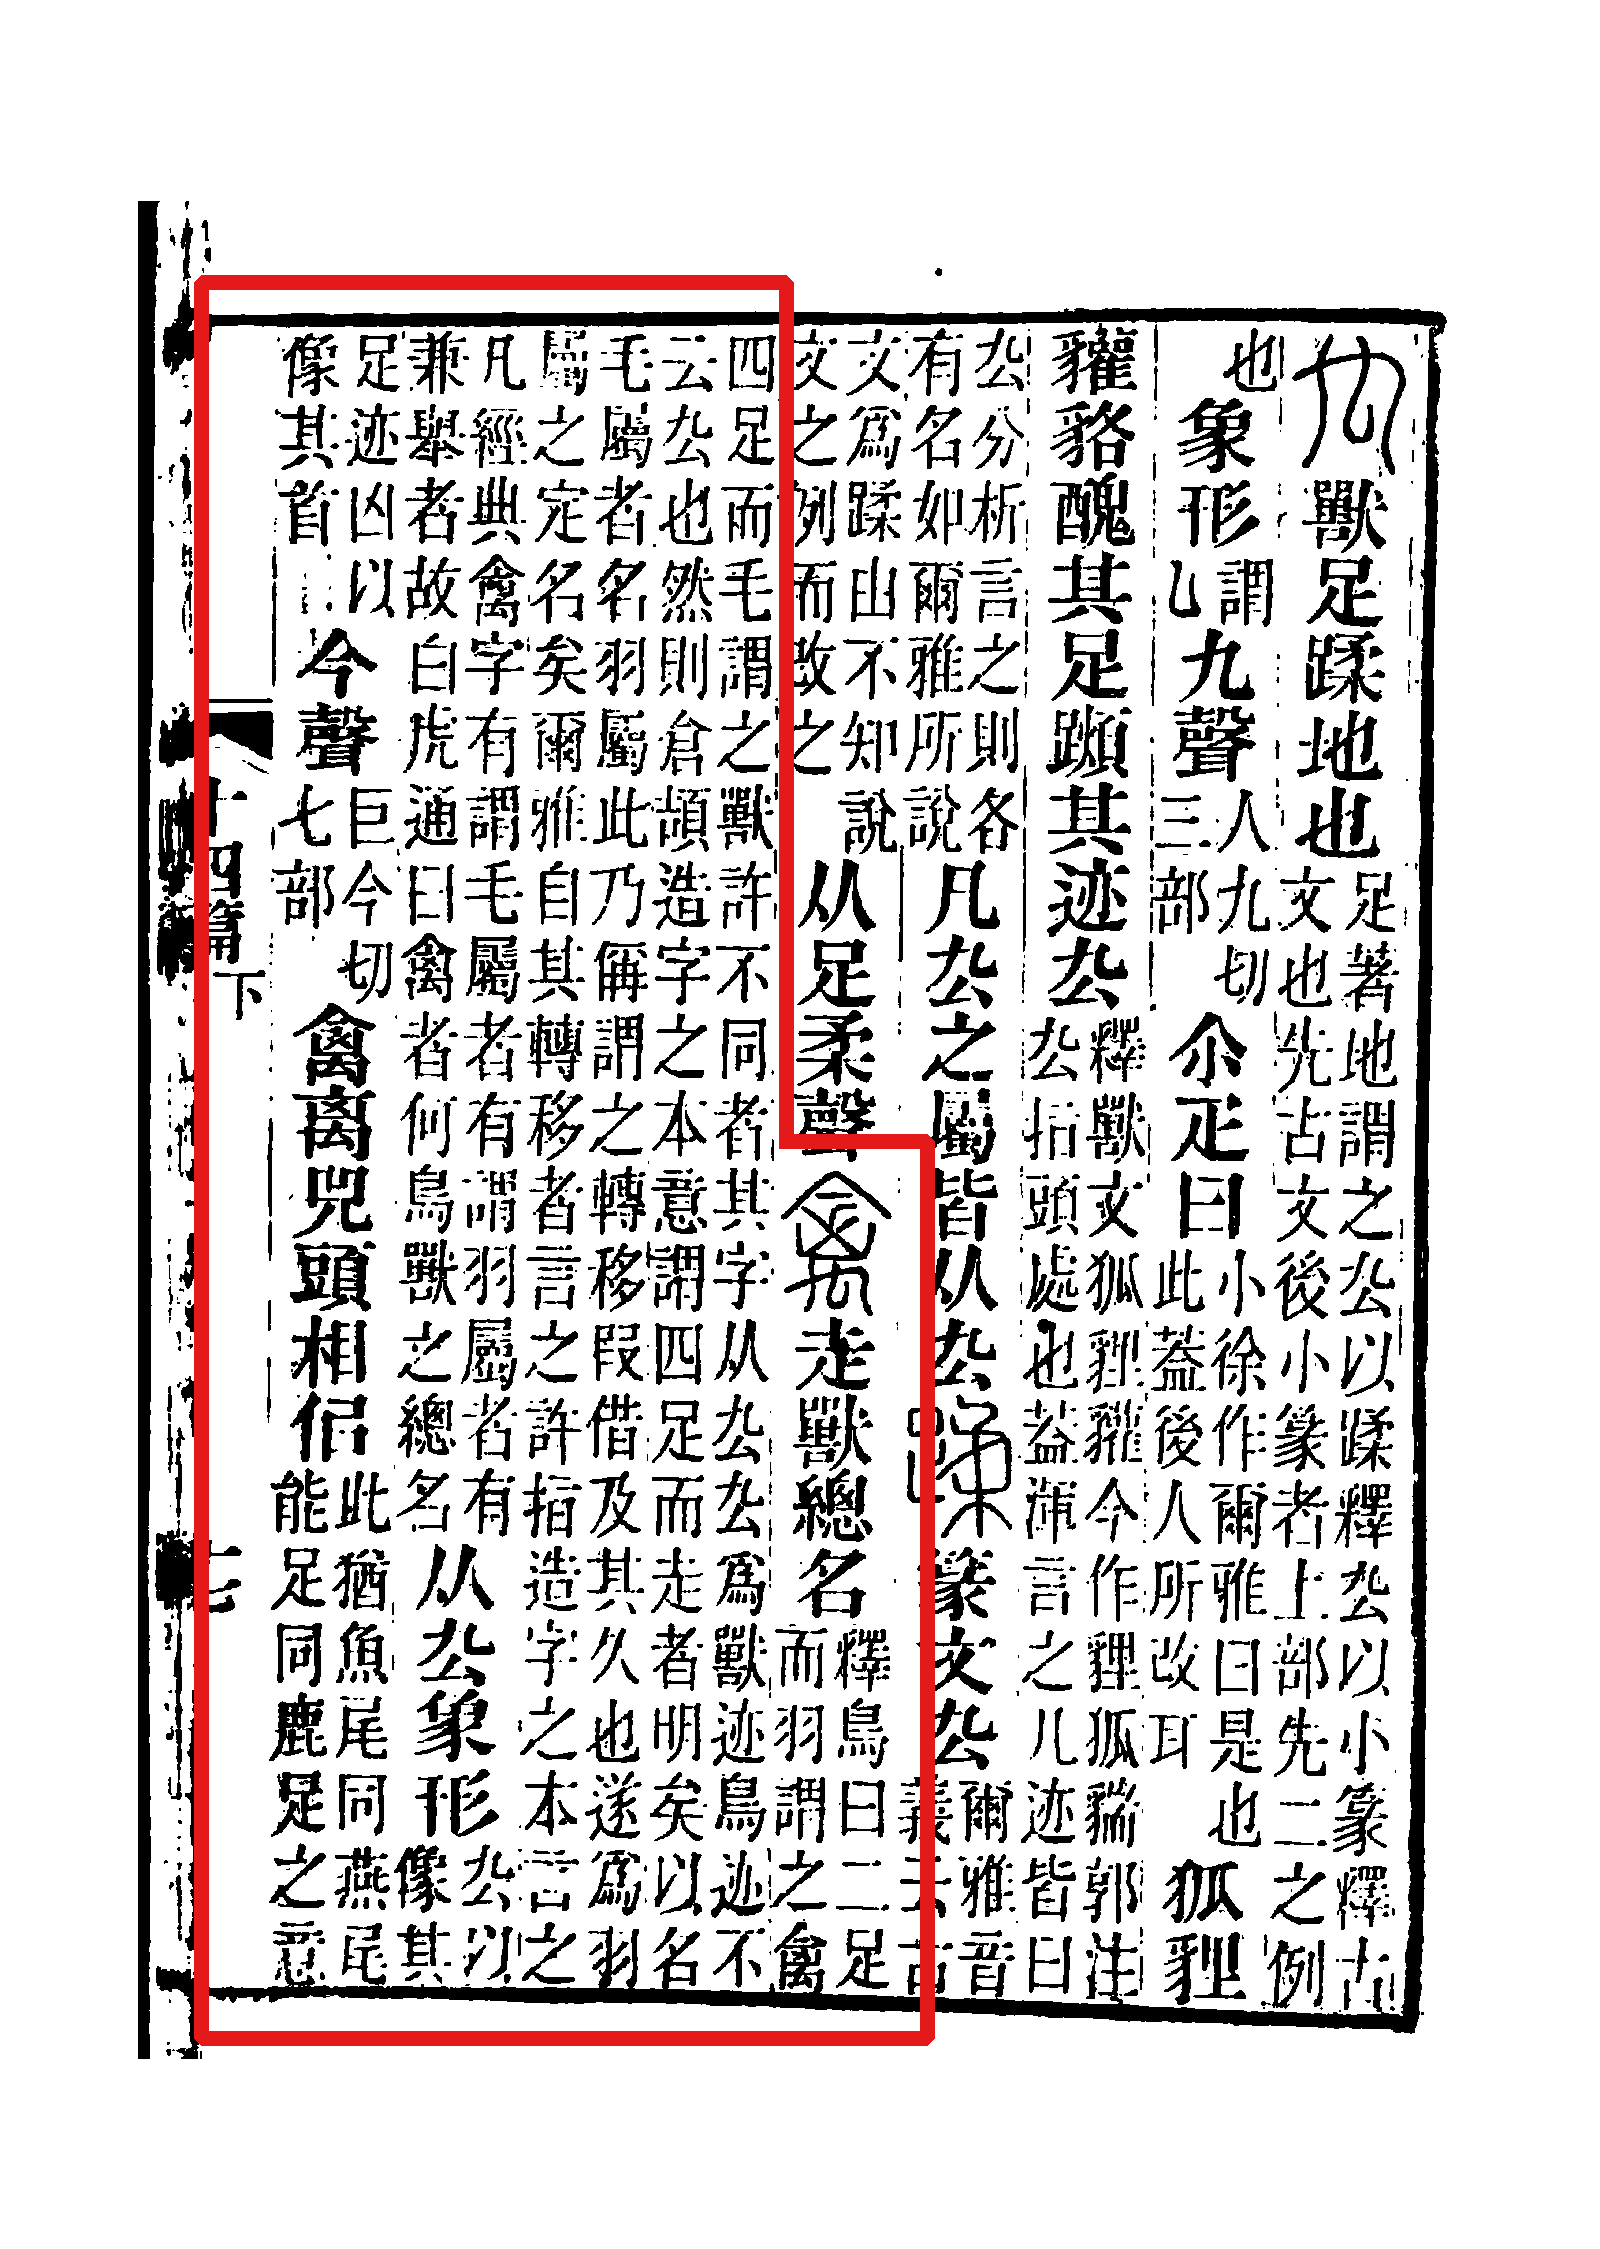 厹獸足蹂地也足著地謂之厹以蹂釋厹以小篆釋古文也先古文後小篆者上部先二之例
也象形謂乚九聲人九切三部尒疋曰小徐作爾雅曰是也此葢後人所改耳狐貍
貛貉醜其足䠗其迹厹釋獸文狐貍貛今作貍狐貒郭注厹指頭處也葢渾言之凡迹皆曰
厹分析言之則各有名如爾雅所說凡厹之屬皆从厹蹂篆文厹爾雅音義云古
文爲蹂山不知說文之例而改之从足柔聲禽走獸總名釋鳥曰二足而羽謂之禽
四足而毛謂之獸許不同者其字从厹厹爲獸迹鳥迹不云厹也然則倉頡造字之本意謂四足而走者明矣以名
毛屬者名羽屬此乃偁謂之轉移叚借及其久也遂爲羽屬之定名矣爾雅自其轉移者言之許指造字之本言之
凡經典禽字有謂毛屬者有謂羽屬者有兼舉者故白虎通曰禽者何鳥獸之總名从厹象形厹以像其
足迹凶以像其首今聲巨今切七部禽离兕頭相佀此猶魚尾同燕尾能足同鹿足之意
十四篇下